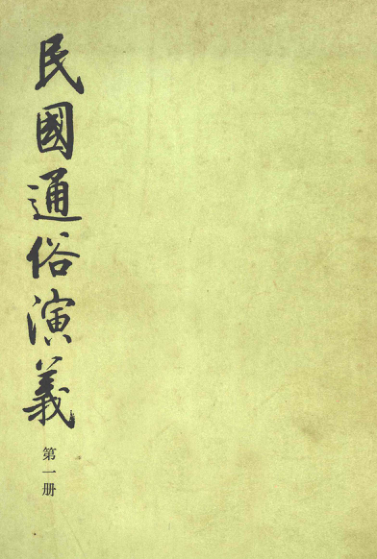 民國通俗演義
第一册